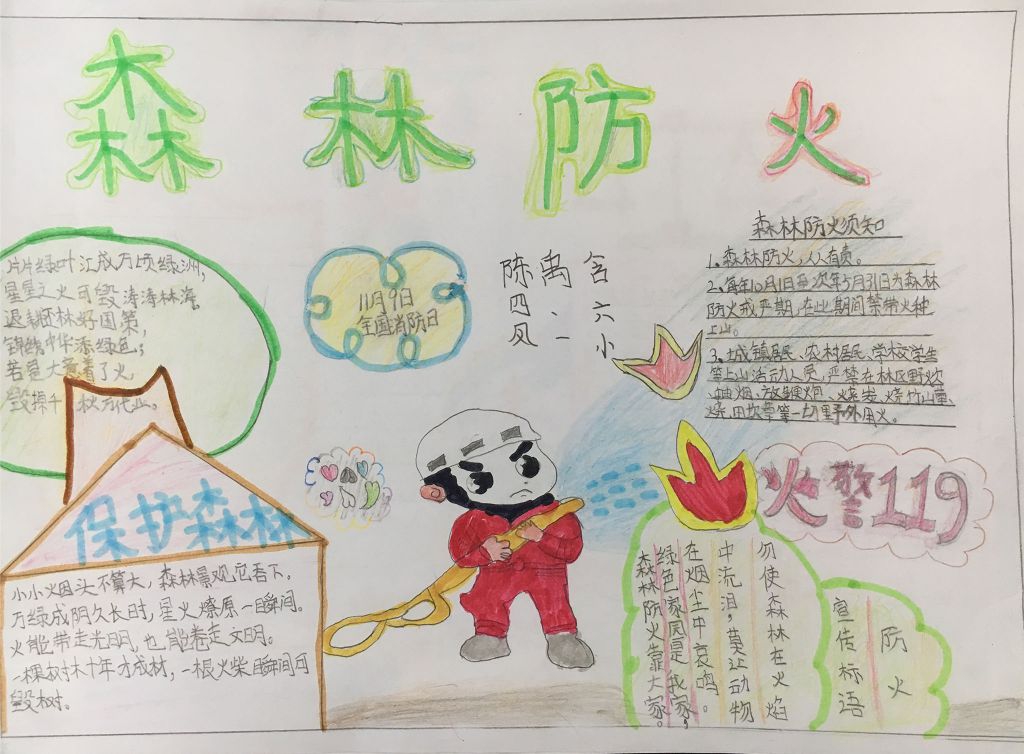 森林防火
片片绿叶汇成万顷绿洲，
星星之火可毁涛涛林海。
退耕还林好国策，
锦绣中华添绿色；
若是大意着了火，
毁掉千秋万代业。
11月9日
全国消防日
陈禹含
四、六
风二小
森林防火须知
1、森林防火，人人有责。
2、每年10月1日至次年5月31日为森林
防火戒严期，在此期间禁带火种
上山。
3、城镇居民、农村居民、学校学生
等上山活动人员，严禁在林区野炊
、抽烟、放鞭炮、烧炭、烧竹山、
烧田坎等一切野外用火。
火警119
保护森林
小小烟头不算大，森林景观它吞下。
万绿成阴久长时，星火燎原一瞬间。
火能带走光明，也能卷走文明。
一棵树木十年方成材，一根火柴瞬间可
毁树。
防火
宣传标语
勿使森林在火焰
中流泪，莫让动物
在烟尘中哀鸣。
绿色家园是我家，
森林防火靠大家。